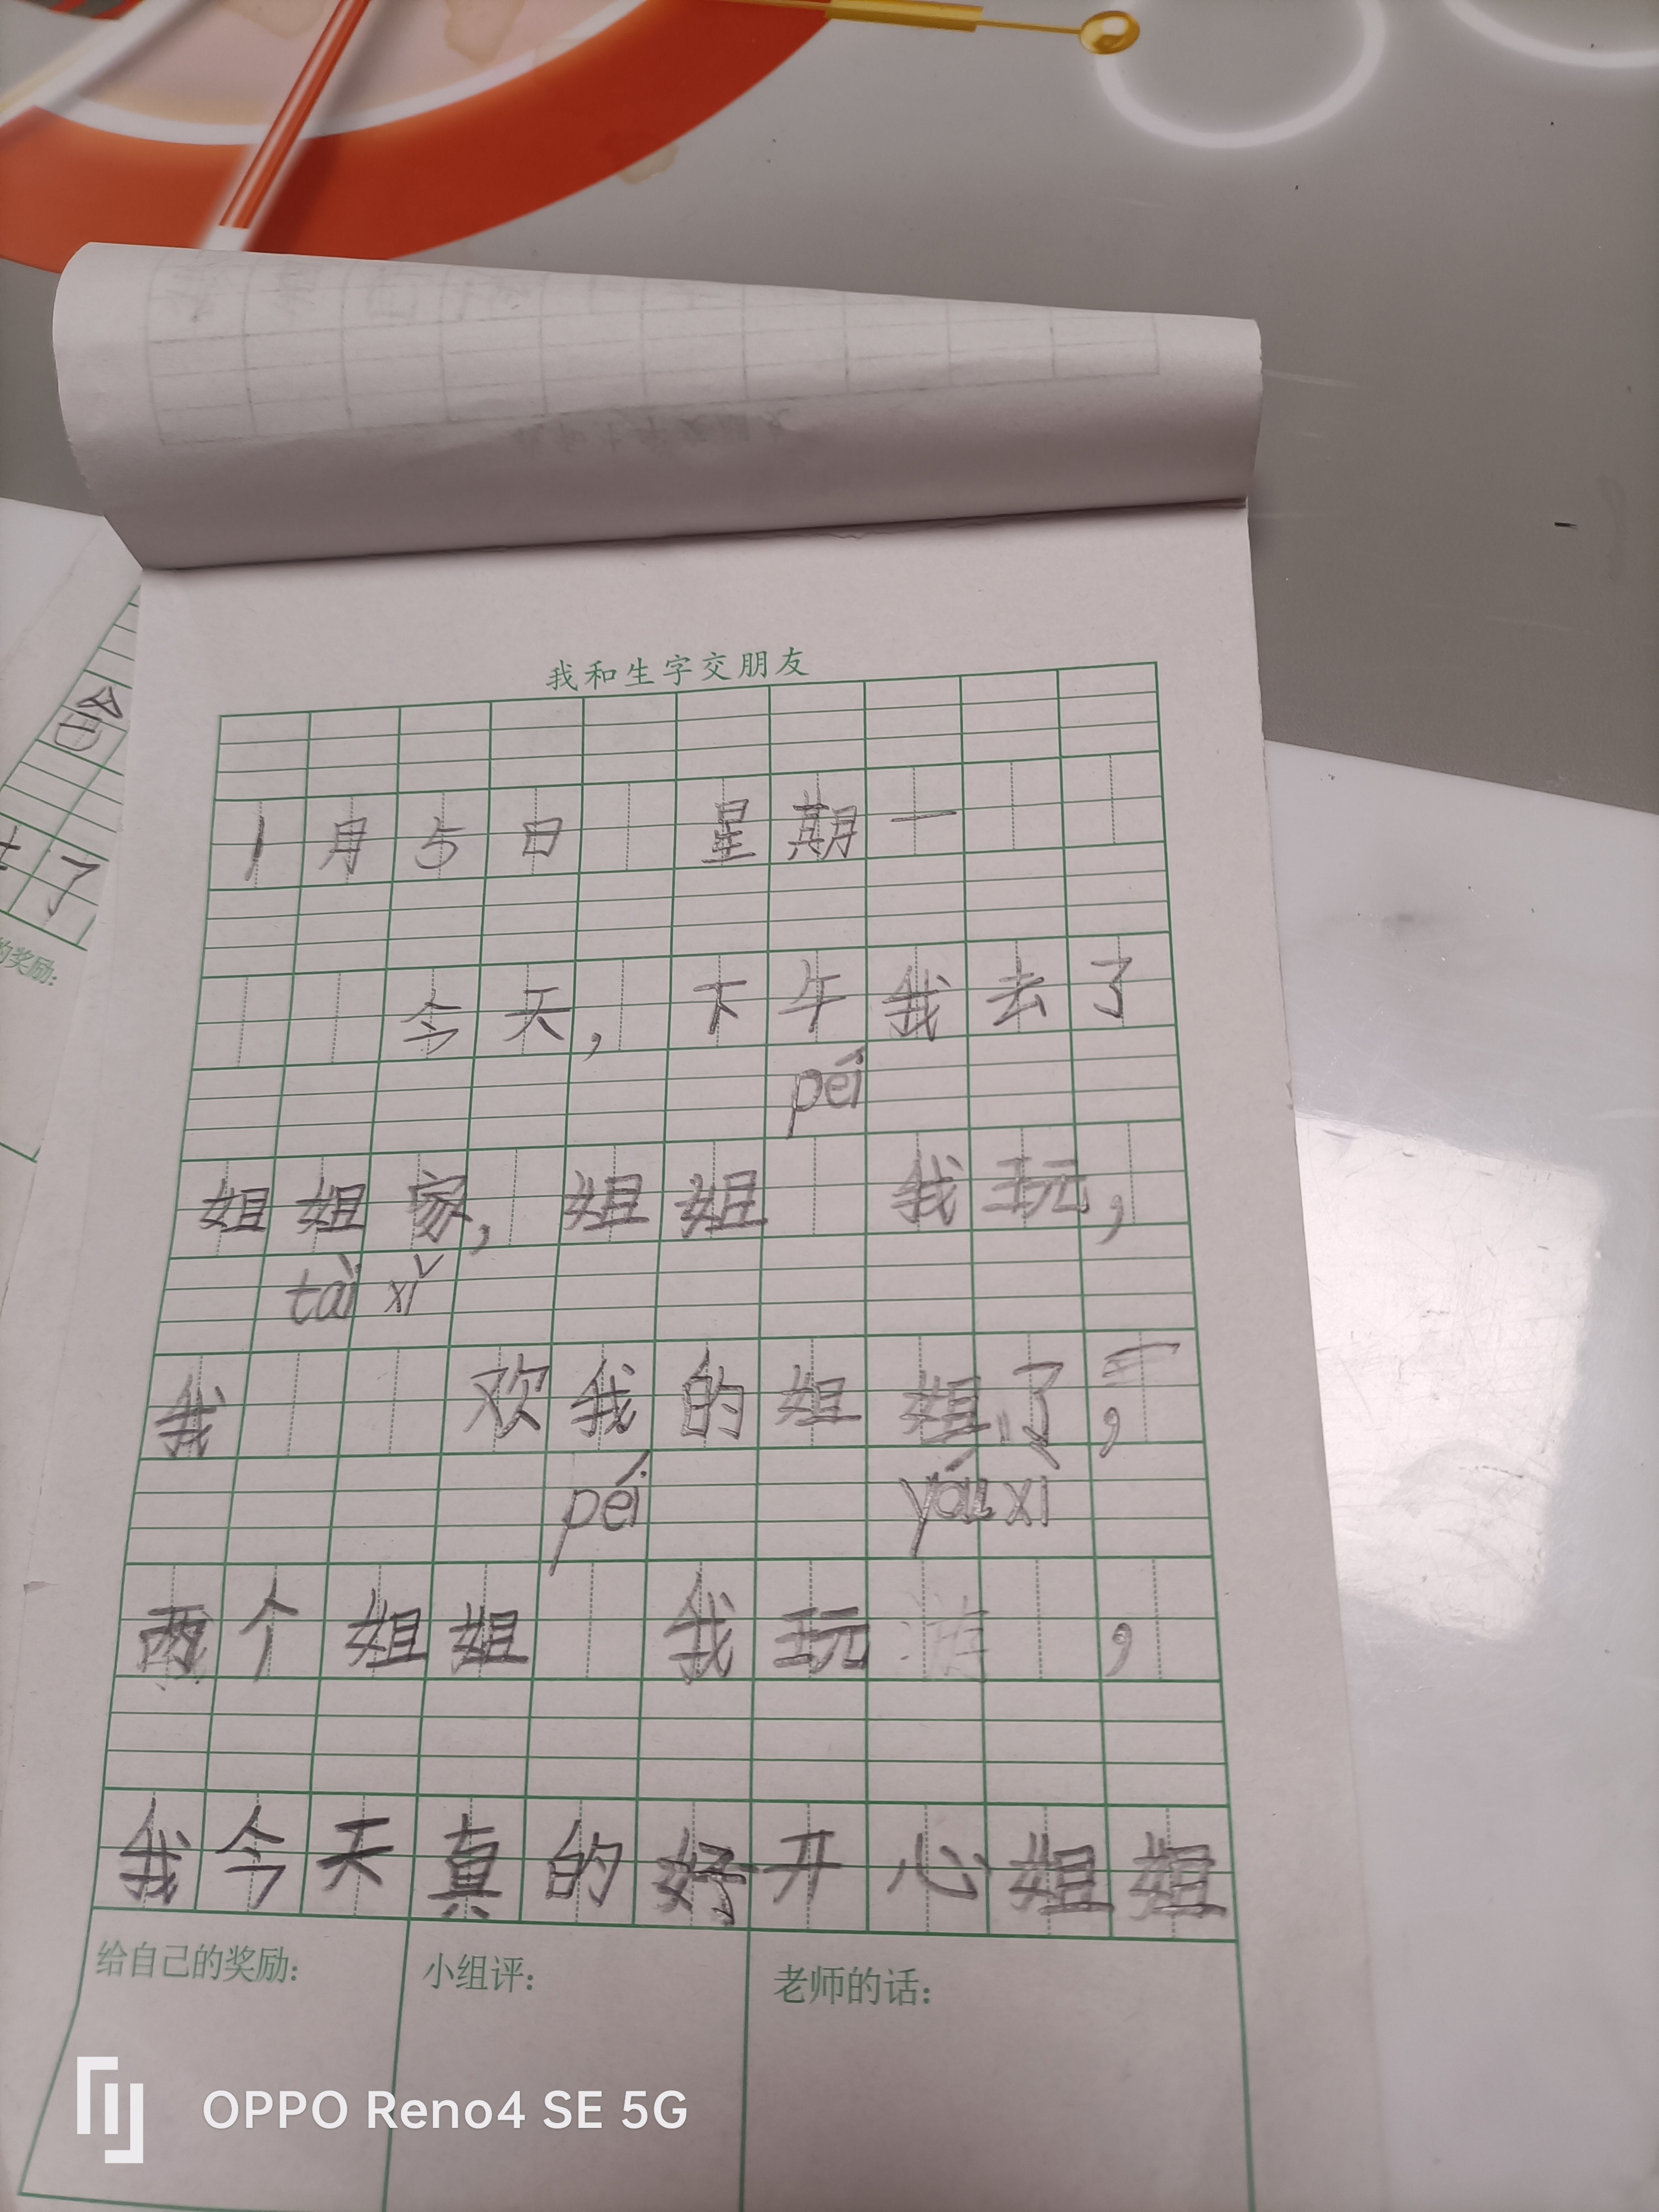 我和生字交朋友
1月5日 星期一
今天，下午我去了
péi
姐姐家，姐姐 我玩，
tài xǐ
我 欢我的姐姐了，
péi yóu xì
两个姐姐 我玩 ，
我今天真的好开心姐姐
给自己的奖励：
小组评：
老师的话：
了
的奖励：
OPPO Reno4 SE 5G